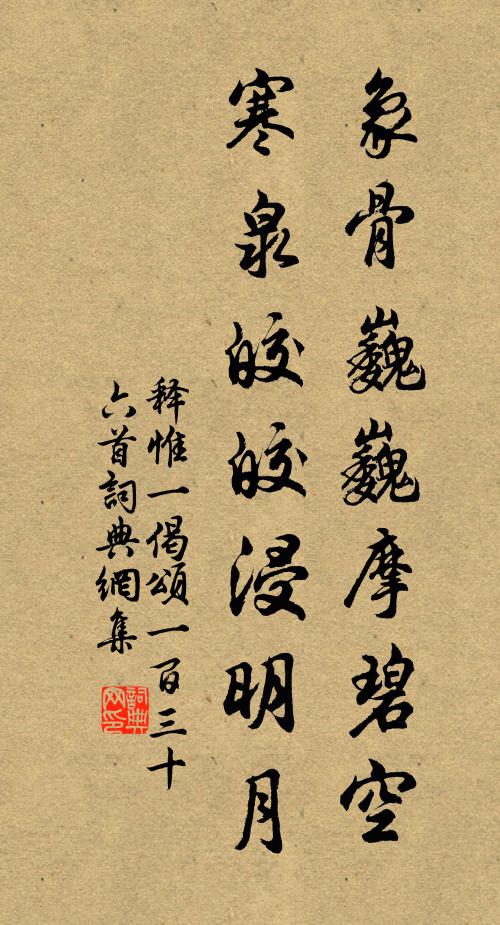 象骨巍巍摩碧空
寒泉皎皎浸明月
释惟一偈頌一百三十
六首詞典網集
詞典
网印